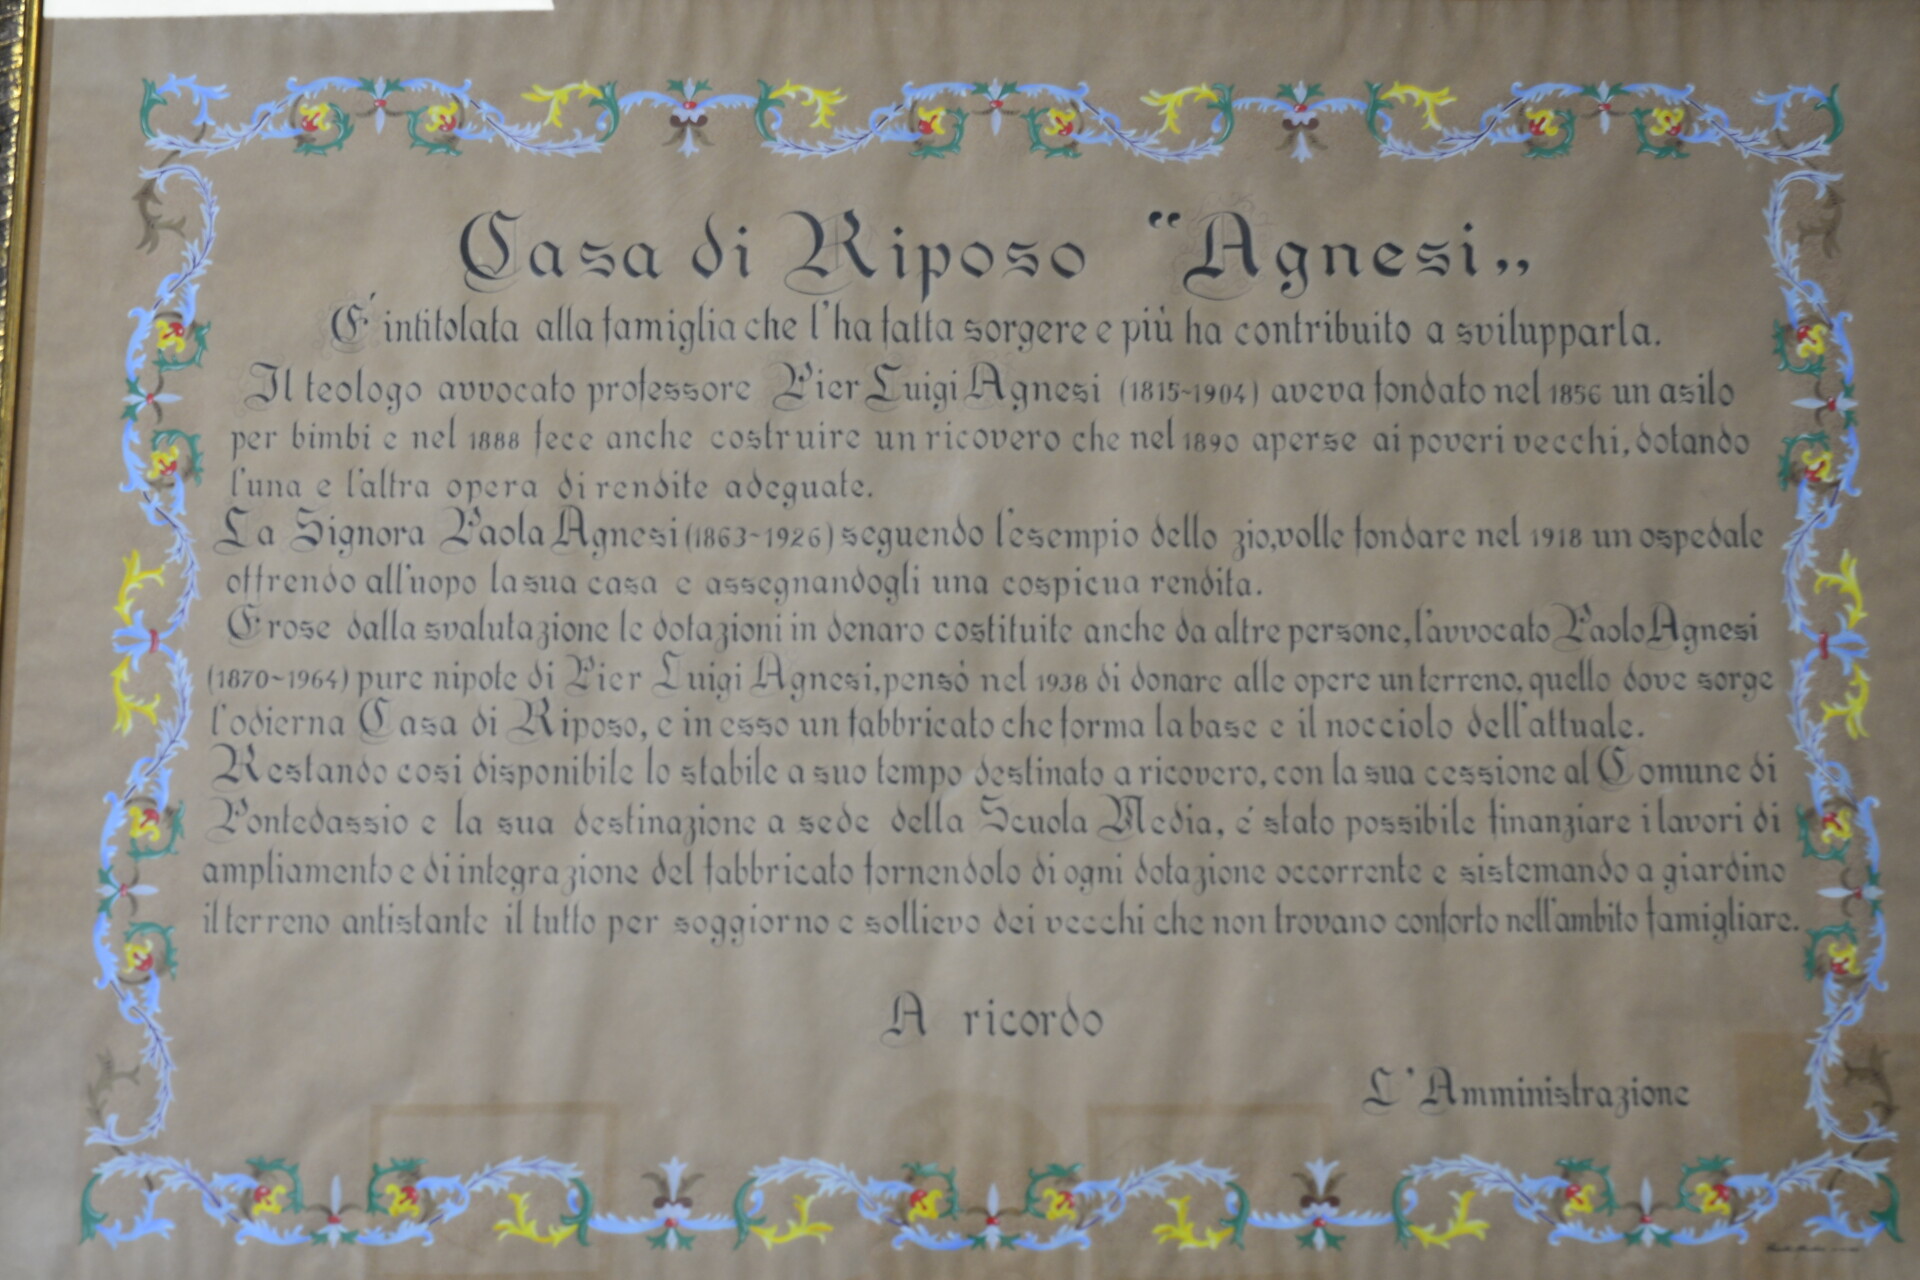 Casa di Riposo “Agnesi„
E' intitolata alla famiglia che l'ha fatta sorgere e più ha contribuito a svilupparla.
Il teologo avvocato professore Pier Luigi Agnesi (1815~1904) aveva fondato nel 1856 un asilo
per bimbi e nel 1888 fece anche costruire un ricovero che nel 1890 aperse ai poveri vecchi, dotando
l'una e l'altra opera di rendite adeguate.
La Signora Paola Agnesi (1863~1926) seguendo l'esempio dello zio, volle fondare nel 1918 un ospedale
offrendo all'uopo la sua casa e assegnandogli una cospicua rendita.
Erose dalla svalutazione le dotazioni in denaro costituite anche da altre persone, l'avvocato Paolo Agnesi
(1870~1964) pure nipote di Pier Luigi Agnesi, pensò nel 1938 di donare alle opere un terreno, quello dove sorge
l'odierna Casa di Riposo, e in esso un fabbricato che forma la base e il nocciolo dell'attuale.
Restando cosi disponibile lo stabile a suo tempo destinato a ricovero, con la sua cessione al Comune di
Pontedassio e la sua destinazione a sede della Scuola Media, é stato possibile finanziare i lavori di
ampliamento e di integrazione del fabbricato fornendolo di ogni dotazione occorrente e sistemando a giardino
il terreno antistante il tutto per soggiorno e sollievo dei vecchi che non trovano conforto nell'ambito famigliare.
A ricordo
L'Amministrazione